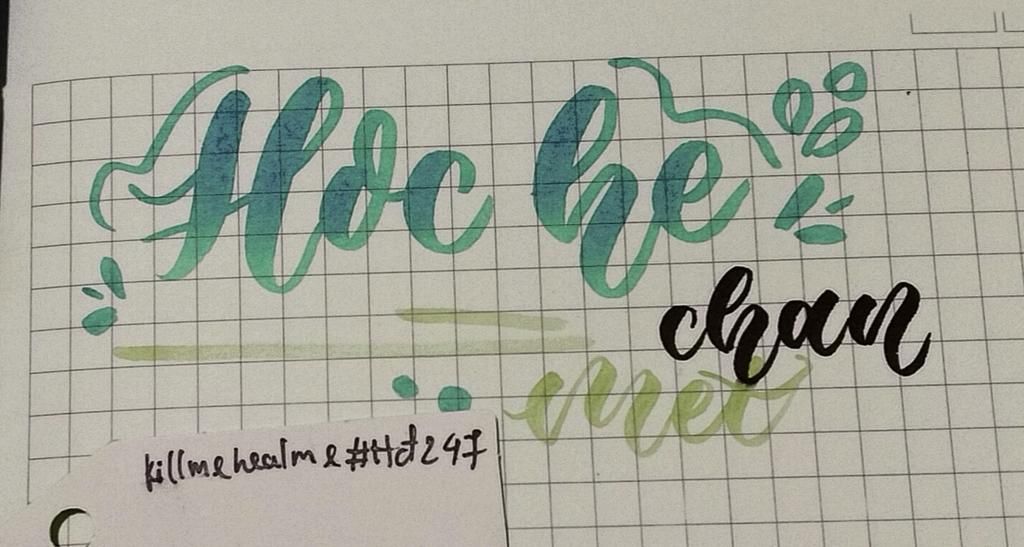 Hoc he
chan
met
killmehealme#Hd247